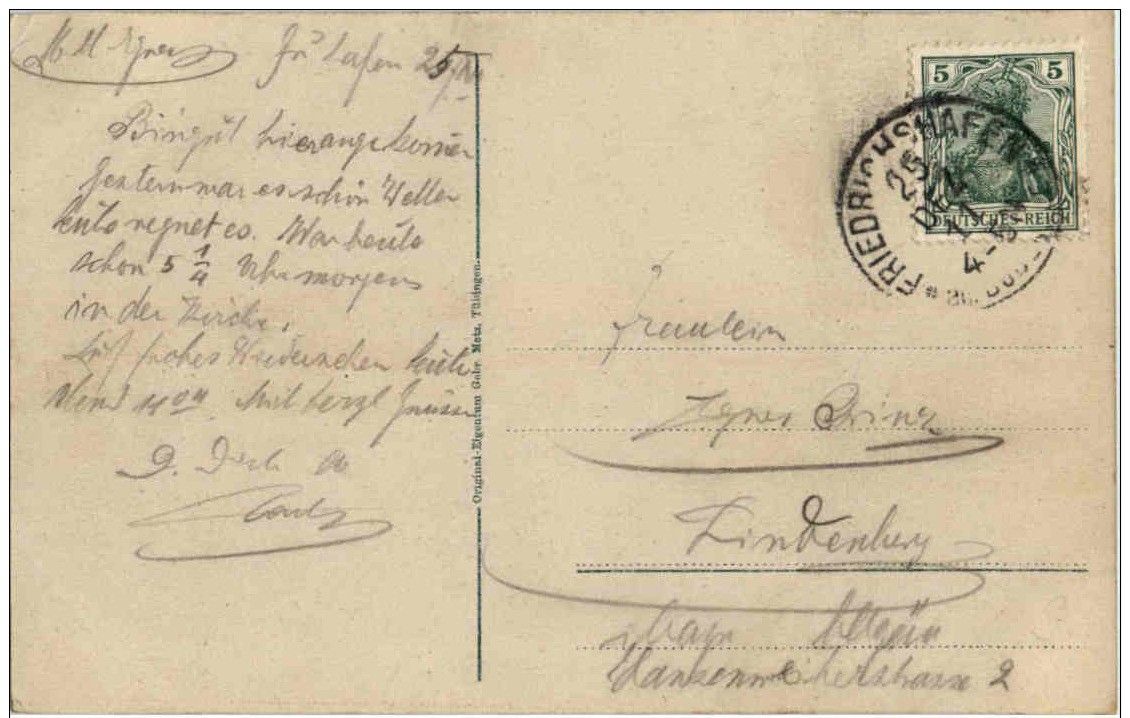 Fr'hafen 25/
Bin gut hier angekommen
Gestern war es schön Wetter
heute regnet es. War heute
schon 5 1/4 Uhr morgens
in der Kirche.
Auf frohes Wiedersehen heute
Abend Mit herzl Grüssen
D. Dich
5 5
DEUTSCHES REICH
FRIEDRICHSHAFEN
25
DEZ
4-5
Original-Eigentum Gebr Metz, Tübingen.
Fräulein
Agnes Prinz
Lindenberg
bayr Allgäu
Hansenweiherstrasse 2